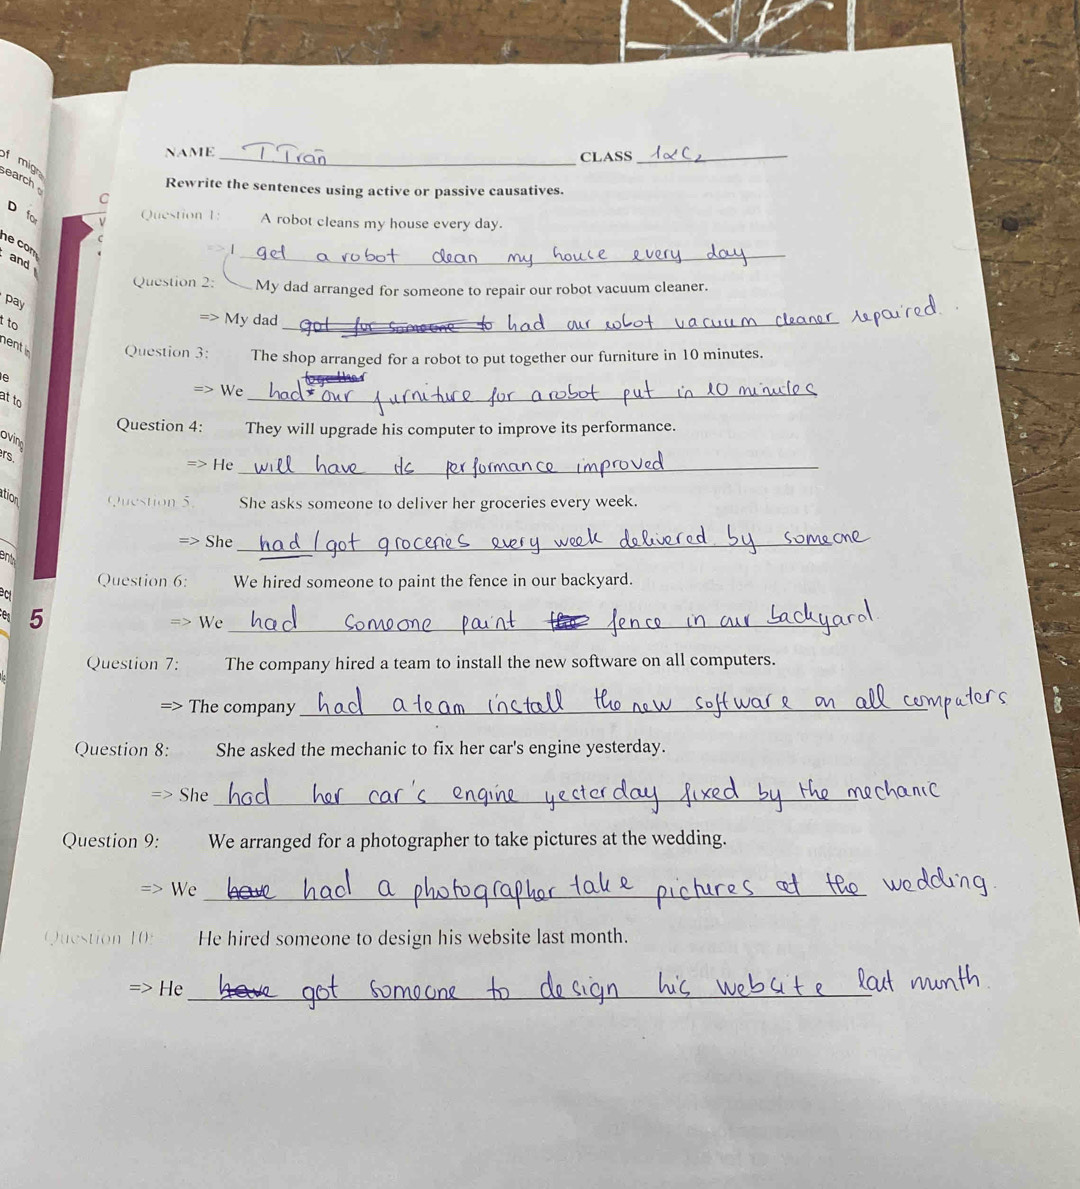 NAME T Tran
CLASS 12C2
Rewrite the sentences using active or passive causatives.
Question 1: A robot cleans my house every day.
=> I get a robot clean my house every day
Question 2: My dad arranged for someone to repair our robot vacuum cleaner.
=> My dad got for someone to had our robot vacuum cleaner repaired.
Question 3: The shop arranged for a robot to put together our furniture in 10 minutes.
together
=> We had our furniture for a robot put in 10 minutes
Question 4: They will upgrade his computer to improve its performance.
=> He will have its performance improved
Question 5. She asks someone to deliver her groceries every week.
=> She had / got groceries every week delivered by someone
Question 6: We hired someone to paint the fence in our backyard.
=> We had someone paint the fence in our backyard.
Question 7: The company hired a team to install the new software on all computers.
=> The company had a team install the new software on all computers
Question 8: She asked the mechanic to fix her car's engine yesterday.
=> She had her car's engine yesterday fixed by the mechanic
Question 9: We arranged for a photographer to take pictures at the wedding.
=> We have had a photographer take pictures at the wedding.
Question 10: He hired someone to design his website last month.
=> He have got someone to design his website last month.
of
search
D for
he
and
pay
t to
e
at to
5